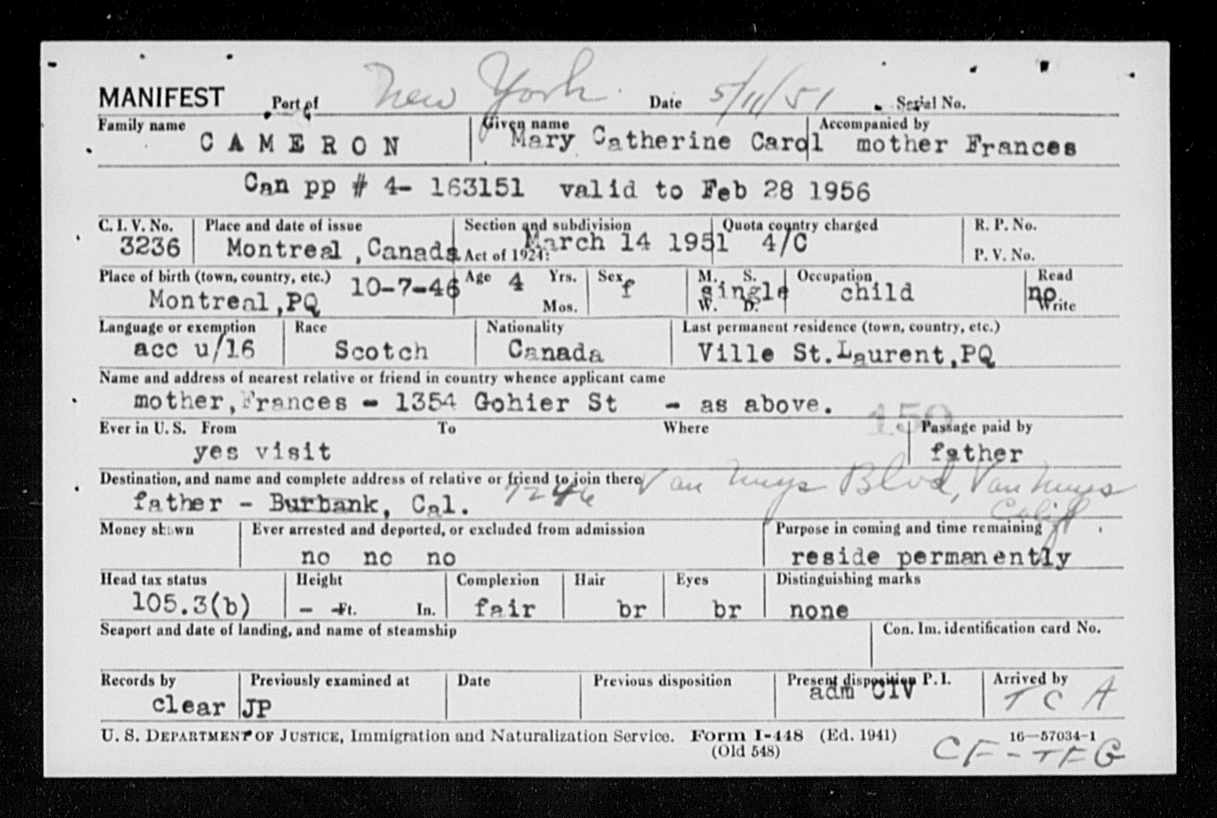 MANIFEST Port of New York Date 5/11/51 Serial No.
Family name Given name Accompanied by
CAMERON Mary Catherine Carol mother Frances
Can pp # 4- 163151 valid to Feb 28 1956
C. I. V. No. Place and date of issue Section and subdivision Quota country charged R. P. No.
3236 Montreal ,Canada Act of 1924: March 14 1951 4/C P. V. No.
Place of birth (town, country, etc.) Age Yrs. Sex M. S. Occupation Read
Montreal,PQ 10-7-46 4 Mos. f single W. D. child no Write
Language or exemption Race Nationality Last permanent residence (town, country, etc.)
acc u/16 Scotch Canada Ville St.Laurent,PQ
Name and address of nearest relative or friend in country whence applicant came
mother,Frances - 1354 Gohier St - as above.
150
Ever in U. S. From To Where Passage paid by
yes visit father
Destination, and name and complete address of relative or friend to join there
father - Burbank, Cal. 7246 Van Nuys Blvd, Van Nuys
Calif
Money shown Ever arrested and deported, or excluded from admission Purpose in coming and time remaining
no no no reside permanently
Head tax status Height Complexion Hair Eyes Distinguishing marks
105.3(b) - Ft. In. fair br br none
Seaport and date of landing, and name of steamship Con. Im. identification card No.
Records by Previously examined at Date Previous disposition Present disposition P. I. Arrived by
clear JP adm CIV T C A
U. S. DEPARTMENT OF JUSTICE, Immigration and Naturalization Service. Form I-448 (Ed. 1941) 16—57034-1
(Old 548) CF-TFG